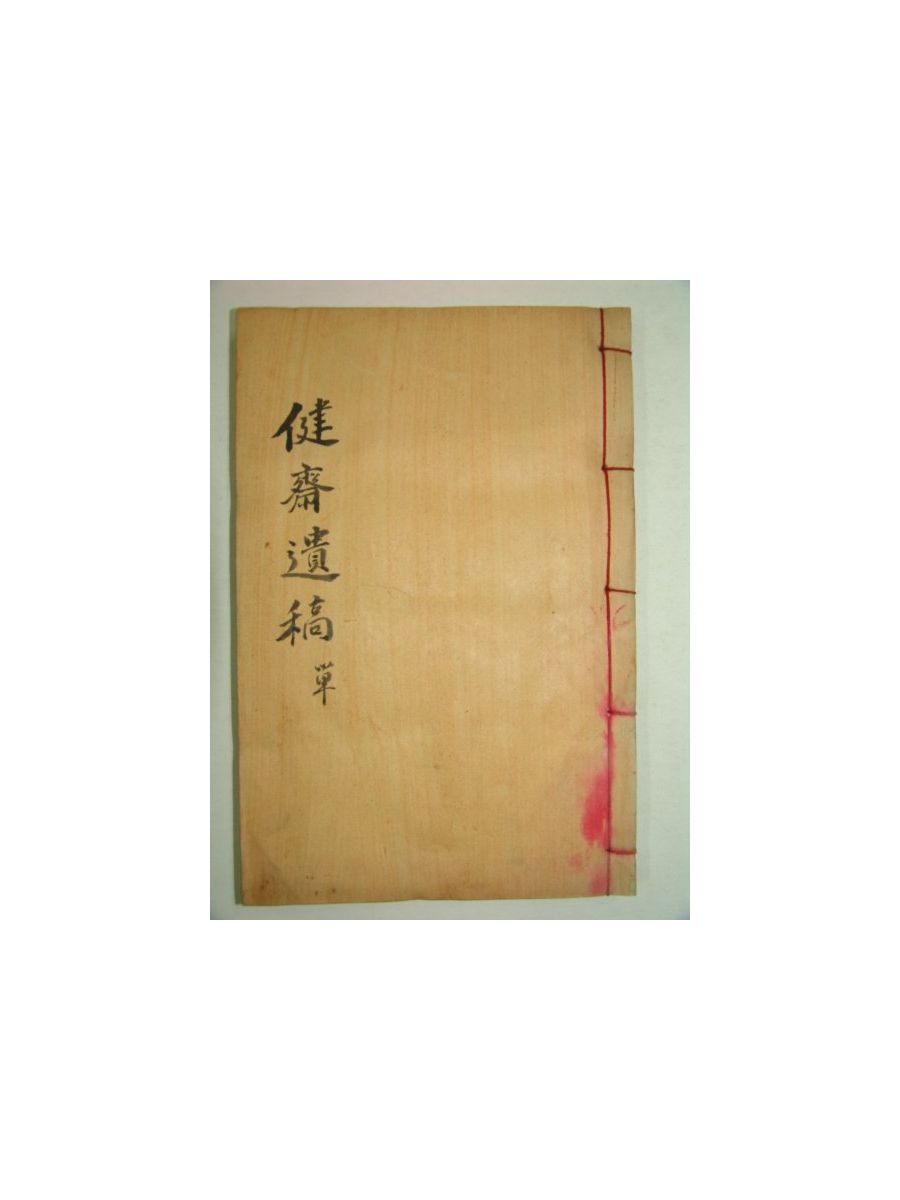 健齋遺稿 單